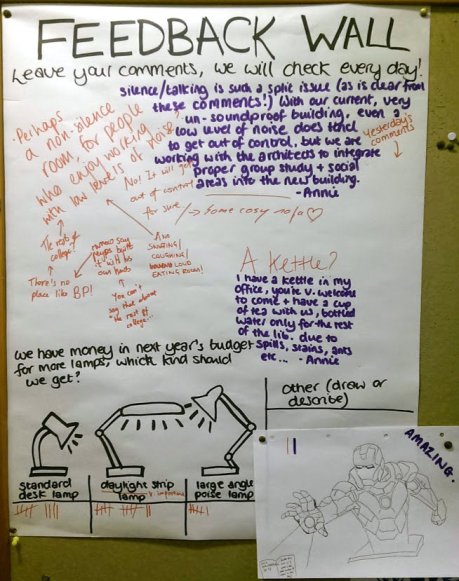 FEEDBACK WALL
Leave your comments, we will check every day!
silence/talking is such a split issue (as is clear from
these comments!) With our current, very
un-soundproof building, even a
low level of noise does tend
to get out of control, but we are
working with the architects to integrate
proper group study + social
areas into the new building.
- Annie
Yesterday's
comments
Perhaps
a non-silence
room, for people
who enjoy working
with low levels of noise?
No! It will get
out of control
for sure!
some cosy
The rest of
college!
There's no
place like BP!
built
it with his
own hands
You can't
say that about
the rest of
college...
And
SNORING/
COUGHING/
LOUD
EATING ROOM!
A Kettle?
I have a kettle in my
office, you're v. welcome
to come + have a cup
of tea with us, bottled
water only for the rest
of the lib. due to
spills, stains, ants
etc... - Annie
we have money in next year's budget
for more lamps, which kind should
we get?
other (draw or
describe)
standard
desk lamp
daylight strip
lamp
important
large angle
poise lamp
AMAZING.